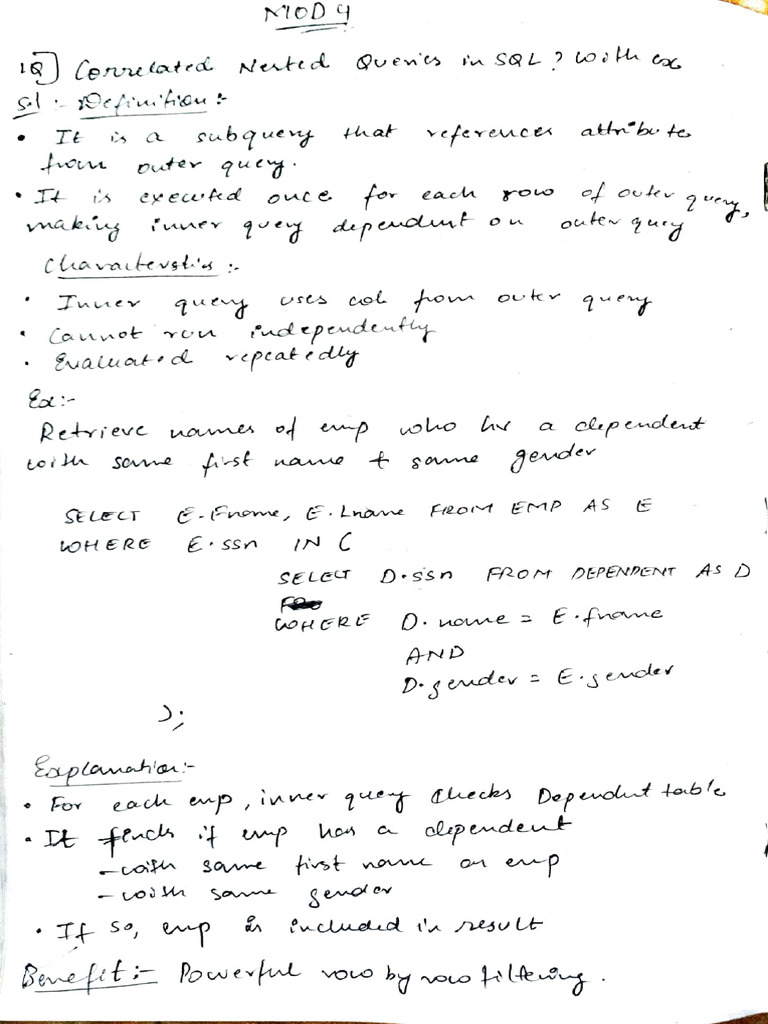 MOD 4
1Q] Correlated Nested Queries in SQL? With ex
Sol :- Definition :-
• It is a subquery that references attribute
from outer query.
• It is executed once for each row of outer query,
making inner query dependent on outer query
Characterstics :-
• Inner query uses col from outer query
• Cannot run independently
• Evaluated repeatedly
Ex:-
Retrieve names of emp who hv a dependent
with same first name + same gender
SELECT E.Fname, E.Lname FROM EMP AS E
WHERE E.ssn IN (
SELECT D.ssn FROM DEPENDENT AS D
WHERE D.name = E.fname
AND
D.gender = E.gender
);
Explanation:-
• For each emp, inner query checks Dependent table
• It finds if emp has a dependent
- with same first name as emp
- with same gender
• If so, emp is included in result
Benefit:- Powerful row by row filtering.